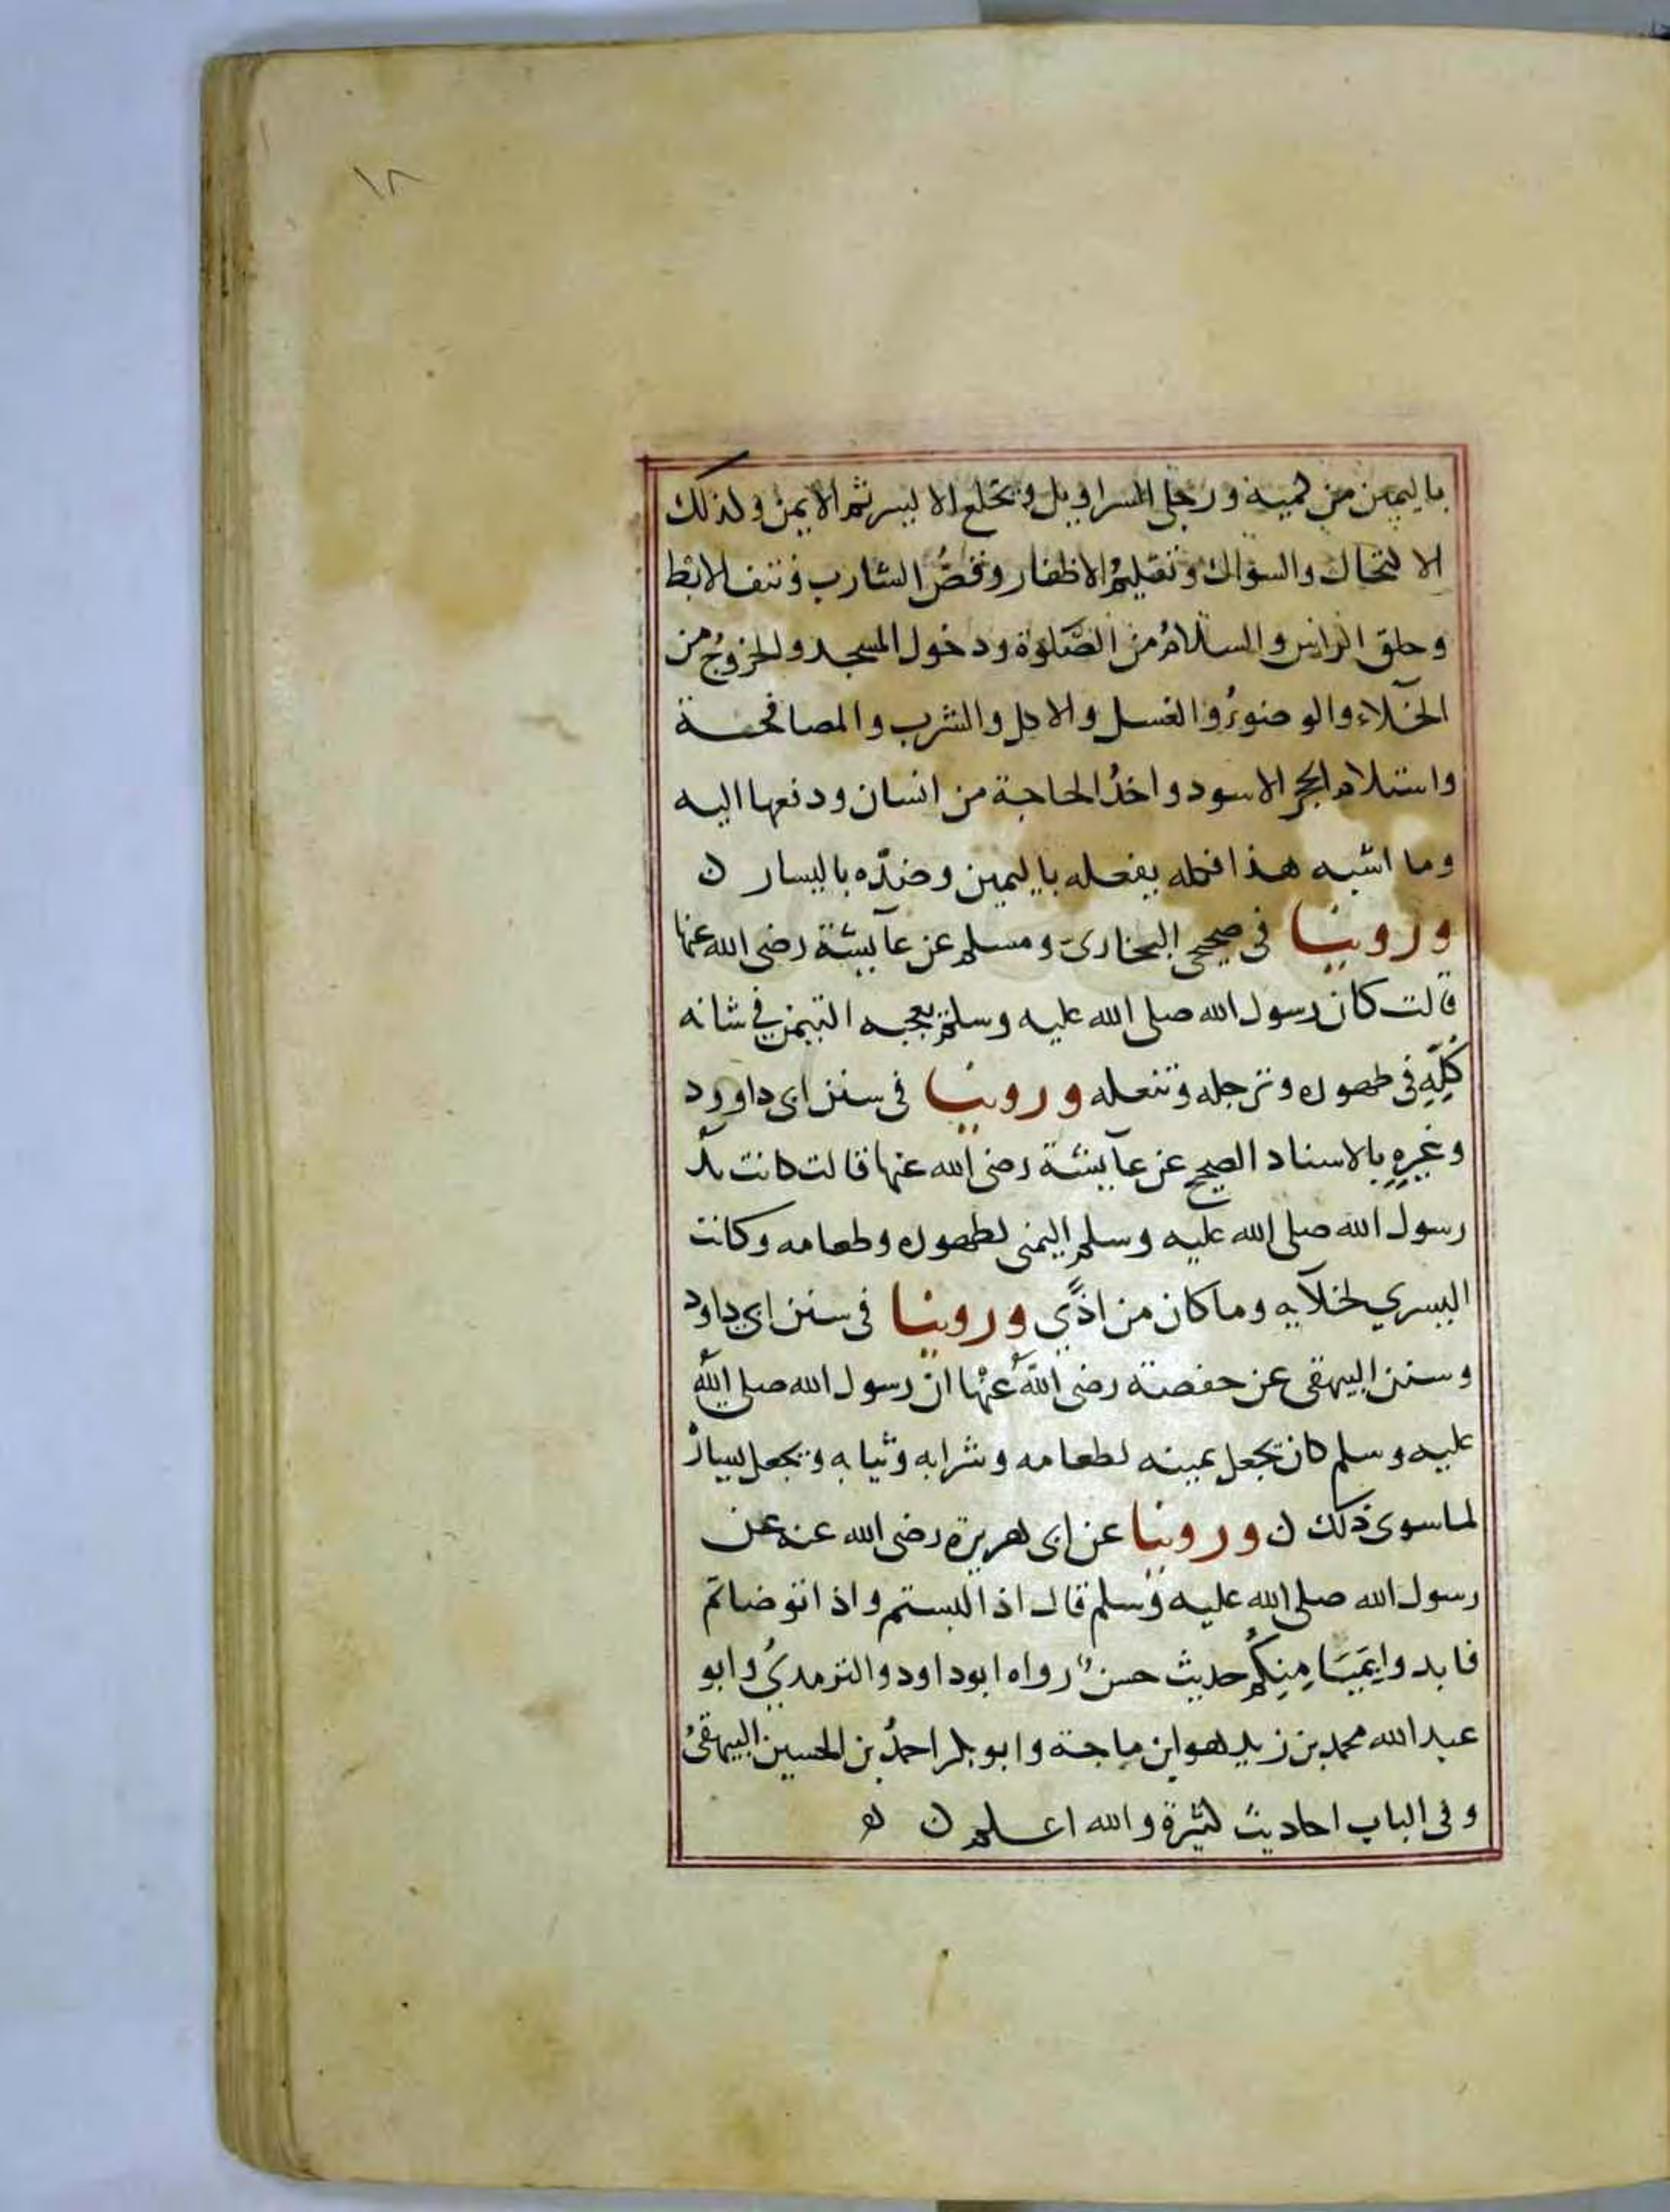 ١٨
باليمين من كميه ورجلى السراويل ويخلع الايسر ثم الايمن وكذلك
الاكتحال والسواك وتقليمُ الاظفار وقصُّ الشارب ونتف الابط
وحلق الراس والسلامُ من الصَّلوة ودخول المسجد والخروجُ من
الخلآء والوضوءُ والغسل والاكل والشرب والمصافحة
واستلام الحجر الاسود واخذُ الحاجة من انسان ودفعها اليه
وما اشبه هذا فكله يفعله باليمين وضدّه باليسار ن
وروينا فى صحيحى البخارى ومسلم عن عآيشة رضى الله عنها
قالت كان رسول الله صلى الله عليه وسلم يعجبه التيمن في شانه
كُلِّهِ فى طهوره وترجله وتنعله وروينا فى سنن ابى داوود
وغيرِهِ بالاسناد الصحيح عن عآيشة رضى الله عنها قالت كانت يدُ
رسول الله صلى الله عليه وسلم اليمنى لطهوره وطعامه وكانت
اليسري لخلآيه وما كان من اذًي وروينا فى سنن ابى داود
وسنن البيهقى عن حفصة رضى اللهُ عنْها ان رسول الله صلى اللهُ
عليه وسلم كان يجعل يمينه لطعامه وشرابه وثيابه ويجعل يساره
لما سوى ذلك ن وروينا عن ابى هريرة رضى الله عنه عن
رسول الله صلى الله عليه وسلم قال اذا لبستم واذا توضاتم
فابدوا بِمَيَامِنِكُم حديث حسن رواه ابوداود والترمديُ وابو
عبد الله محمد بن زيد هو ابن ماجة وابو بكر احمدُ بن الحسين البيهقىُ
وفى الباب احاديث كثيرة والله اعلم ن